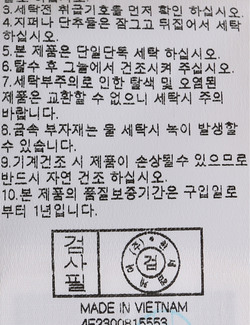 3.세탁전 취급기호를 먼저 확인 하십시오.
4.지퍼나 단추들은 잠그고 뒤집어서 세탁
하십시오.
5.본 제품은 단일단독 세탁 하십시오.
6.탈수 후 그늘에서 건조시켜 주십시오.
7.세탁부주의로 인한 탈색 및 오염된
제품은 교환할 수 없으니 세탁시 주의
바랍니다.
8.금속 부자재는 물 세탁시 녹이 발생할
수 있습니다.
9.기계건조 시 제품이 손상될수 있으므로
반드시 자연 건조 하십시오.
10.본 제품의 품질보증기간은 구입일로
부터 1년입니다.
검사필
(주)
검
MADE IN VIETNAM
4F2300815553